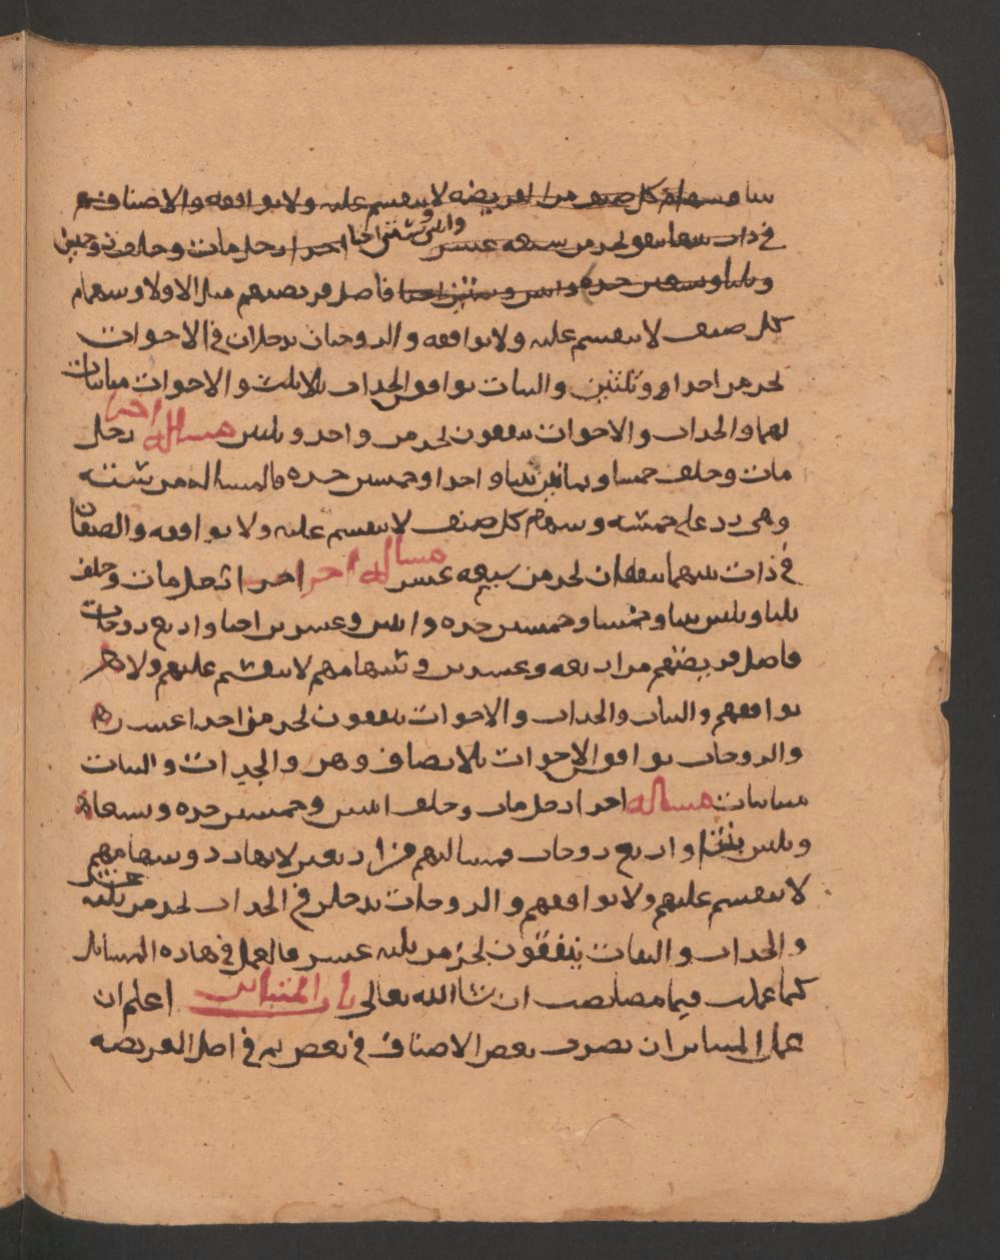 بنتا وسهام كل صنف من الفريضه لا ينقسم عليه ولا يوافقه والاصناف
في ذات بينها يتفق لجزء من سبعه عشر واثنين وستين اختا اخر رجل مات وخلف زوجتين
وثلثا وسبعين جده واثنين وستين اختا فاصل فريضتهم مثل الاولا وسهام
كل صنف لا ينقسم عليه ولا يوافقه والزوجتان يدخلان في الاخوات
لجزء من احدا وثلثين والبنات يوافق الجدات بالاثلاث والاخوات مباينات
لهما والجدات والاخوات يتفقون لجزء من واحد وثلثين مساله اخرا رجل
مات وخلف خمسا وثمانين بنتا واحدا وخمسين جده فالمساله من سته
وهي رد على خمسه وسهام كل صنف لا ينقسم عليه ولا يوافقه والصنفان
في ذات بينهما يتفقان لجزء من سبعه عشر مساله اخرا رجل مات وخلف
ثلثا وثلثين بنتا وخمسا وخمسين جده واثنين وعشرين اختا واربع زوجات
فاصل فريضتهم من اربعه وعشرين وسهامهم لا ينقسم عليهم ولا
يوافقهم والبنات والجدات والاخوات يتفقون لجزء من احدا عشر
والزوجات يوافق الاخوات بالانصاف وهن والجدات والبنات
مباينات مساله اخرا رجل مات وخلف اثنين وخمسين جده وتسعا
وثلثين بنتا واربع زوجات ومسالتهم من اربعين لانها رد وسهامهم
لا ينقسم عليهم ولا يوافقهم والزوجات يدخلن في الجدات لجزء من ثلثه عشر
والجدات والبنات يتفقون لجزء من ثلثه عشر فالعمل في هاذه المسائل
كما عملت فيما مضا نصب ان شا الله تعالى باب المتباين اعلم ان
عمل المتباين ان تضرب بعض الاصناف في بعض ثم في اصل الفريضه